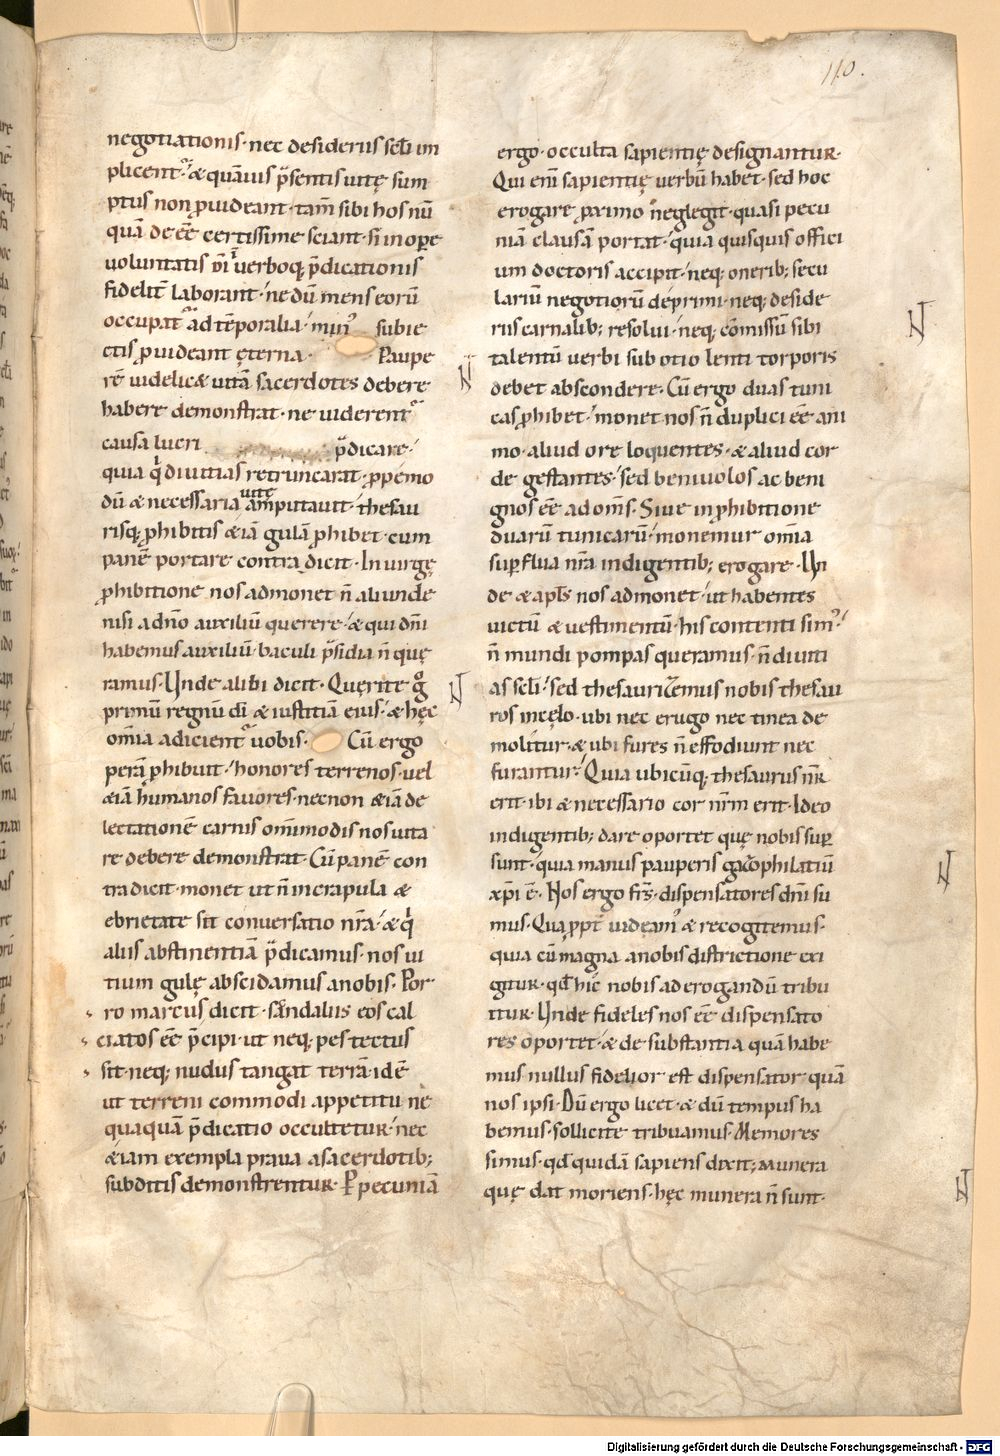 110.
negotiationis· nec desideriis scłi im
plicent᷑· & quāuis p̄sentis uitę sum
ptus non ꝓuideant· tam̄ sibi hos nū
quā de eē certissime sciant· si in opere
uoluntatis dn̄i uerboq; p̄dicationis
fidelit̄ laborant· ne dū mens eorū
occupat᷑ ad tēporalia· min᷒ subie
ctis ꝓuideant ęterna· Paupe
rē uidelic& uitā sacerdotes debere
habere demonstrat· ne uiderent᷑
causa lucri p̄dicare·
quia q̇ diuitias retruncarat· ꝓpemo
dū & necessaria uitę amputauit· thesau
risq; ꝓhibitis &iā gulā ꝓhibet· cum
panē portare contradicit· In uirgę
ꝓhibitione nos admonet n̄ aliunde
nisi a dn̄o auxiliū querere· & qui dn̄i
habemus auxiliū· baculi p̄sidia n̄ quę
ramus· Unde alibi dicit· Quęrite g̊
primū regnū dī & iustitiā eius· & hęc
om̄ia adicient᷑ uobis· Cū ergo
perā ꝓhibuit· honores terrenos· uel
&iā humanos fauores· necnon &iā de
lectationē carnis om̄imodis nos uita
re debere demonstrat· Cū panē con
tradicit· monet ut n̄ in crapula &
ebrietate sit conuersatio nr̄a· & q̇
aliis abstinentiā p̄dicamus· nos ui
tium gulę abscidamus a nobis· Por
ro marcus dicit· sandaliis eos cal
ciatos eē p̄cipi· ut neq; pes tectus
sit· neq; nudus tangat terrā· idē
ut terreni commodi appetitu ne
quaquā p̄dicatio occultetur· nec
&iam exempla praua a sacerdotib;
subditis demonstrentur· P pecuniā
ergo· occulta sapientię designantur·
Qui eni sapientię uerbū habet· sed hoc
erogare ꝓximo neglegit· quasi pecu
niā clausā portat· quia quisquis offici
um doctoris accipit· neq; onerib; secu
lariū negotiorū deprimi· neq; deside
riis carnalib; resolui· neq; cōmissū sibi
talentū uerbi sub otio lenti torporis
debet abscondere· Cū ergo duas tuni
cas ꝓhibet· monet nos n̄ duplici eē ani
mo· aliud ore loquentes· & aliud cor
de gestantes· sed beniuolos ac beni
gnos eē ad om̄s· Siue in ꝓhibitione
duarū tunicarū· monemur om̄ia
suꝑflua nr̄a indigentib; erogare· Un
de & apłs nos admonet· ut habentes
uictū & uestimentū· his contenti sim᷒·
n̄ mundi pompas queramus· n̄ diuiti
as scłi· sed thesaurizemus nobis thesau
ros in cęlo· ubi nec erugo nec tinea de
molitur· & ubi fures n̄ effodiunt nec
furantur· Quia ubicūq; thesaurus nr̄
erit· ibi & necessario cor nr̄m erit· Ideo
indigentib; dare oportet quę nobis suꝑ
sunt· quia manus pauperis gazophilatiū
xp̄i ē· Nos ergo frs̄· dispensatores dn̄i su
mus· Quaꝓpt̄ uideam᷒ & recogitemus·
quia cū magna a nobis districtione exi
gitur· qđ hic nobis ad erogandū tribu
itur· Unde fideles nos eē dispensato
res oportet· & de substantia quā habe
mus nullus fidelior est dispensator quā
nos ipsi· Dū ergo licet· & dū tempus ha
bemus· sollicite tribuamus· Memores
simus· qđ quidā sapiens dixit; Munera
quę dat moriens· hęc munera n̄ sunt·
N
N
N
N
N
Digitalisierung gefördert durch die Deutsche Forschungsgemeinschaft - DFG